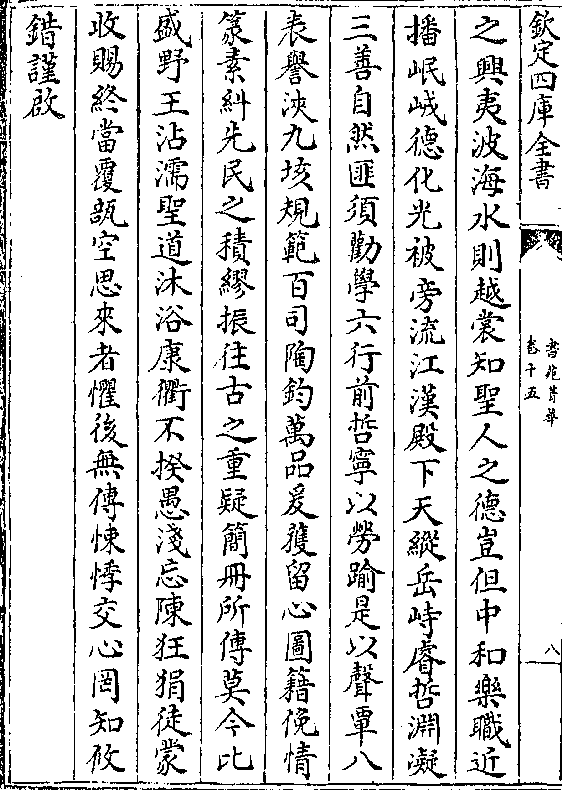 欽定四庫全書
書苑菁華
卷十五
八
之興夷波海水則越裳知聖人之德豈但中和樂職近
播岷峨德化光被旁流江漢殿下天縱岳峙睿哲淵凝
三善自然匪須勸學六行前哲寧以勞踰是以聲覃八
表譽浹九垓規範百司陶鈞萬品爰獲留心圖籍俛情
篆素糾先民之積繆振往古之重疑簡冊所傳莫今比
盛野王沾濡聖道沐浴康衢不揆愚淺忘陳狂狷徒蒙
收賜終當覆瓿空思來者懼後無傳悚悸交心罔知攸
錯謹啟